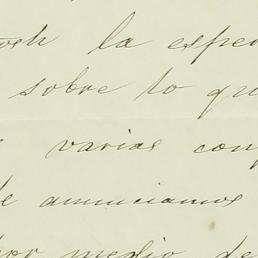 la espe
sobre lo qu
varias con
de anunciamos
por medio de